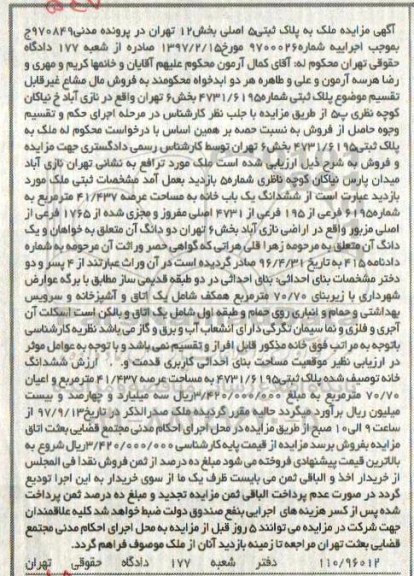 آگهی مزایده ملک به پلاک ثبتی۵ اصلی بخش۱۲ تهران در پرونده مدنی۹۷۰۸۴۹ج
بموجب اجراییه شماره۹۷۰۰۰۲۶ مورخ۱۳۹۷/۲/۱۵ صادره از شعبه ۱۷۷ دادگاه
حقوقی تهران محکوم له: آقای کمال آزمون محکوم علیهم آقایان و خانمها کریم و مهری و
رضا هرسه آزمون و علی و طاهره هر دو ابدخواه محکومند به فروش مال مشاع غیرقابل
تقسیم موضوع پلاک ثبتی شماره۴۷۳۱/۶۱۹۵ بخش۶ تهران واقع در نازی آباد خ نیاکان
کوچه نظری پ۵ از طریق مزایده با جلب نظر کارشناس در مرحله اجرای حکم و تقسیم
وجوه حاصل از فروش به نسبت حصه بر همین اساس با درخواست محکوم له ملک به
پلاک ثبتی۴۷۳۱/۶۱۹۵ بخش۶ تهران توسط کارشناس رسمی دادگستری جهت مزایده
و فروش به شرح ذیل ارزیابی شده است ملک مورد ترافع به نشانی تهران نازی آباد
میدان پارس نیاکان کوچه ناظری شماره۵ بازدید بعمل آمد مشخصات ثبتی ملک مورد
بازدید عبارت است از ششدانگ یک باب خانه به مساحت عرصه ۴۱/۴۳۷ مترمربع به
شماره۶۱۹۵ فرعی از ۱۹۵ فرعی از ۴۷۳۱ اصلی مفروز و مجزی شده از ۱۷۶۵ فرعی از
اصلی مزبور واقع در اراضی نازی آباد بخش۶ تهران دو دانگ آن متعلق به خواهان و یک
دانگ آن متعلق به مرحومه زهرا قلی هراتی که گواهی حصر وراثت آن مرحومه به شماره
دادنامه ۴۱۵ به تاریخ ۹۶/۴/۳۱ صادر گردیده است در آن وراث عبارتند از ۴ پسر و دو
دختر مشخصات بنای احداثی: بنای احداثی در دو طبقه قدیمی ساز مطابق با برگه عوارض
شهرداری با زیربنای ۷۰/۷۰ مترمربع همکف شامل یک اتاق و آشپزخانه و سرویس
بهداشتی و حمام و انباری روی حمام و طبقه اول شامل یک اتاق و بالکن است اسکلت آن
آجری و فلزی و نما سیمان تگرگی دارای انشعاب آب و برق و گاز می باشد نظریه کارشناسی
باتوجه به مراتب فوق خانه مذکور قابل افراز و تقسیم نمی باشد و با توجه به عوامل موثر
در ارزیابی نظیر موقعیت مساحت بنای احداثی کاربری قدمت و. ارزش ششدانگ
خانه توصیف شده پلاک ثبتی۴۷۳۱/۶۱۹۵ به مساحت عرصه ۴۱/۴۳۷ مترمربع و اعیان
۷۰/۷۰ مترمربع به مبلغ ۳/۴۲۰/۰۰۰/۰۰۰ریال سه میلیارد و چهارصد و بیست
میلیون ریال برآورد میگردد حالیه مقرر گردیده ملک صدرالذکر در تاریخ۹۷/۹/۱۳ از
ساعت ۹ الی ۱۰ صبح از طریق مزایده در محل اجرای احکام مدنی مجتمع قضایی بعثت اتاق
مزایده بفروش برسد مزایده از قیمت پایه کارشناسی ۳/۴۲۰/۰۰۰/۰۰۰ریال شروع به
بالاترین قیمت پیشنهادی فروخته می شود مبلغ ده درصد از ثمن فروش نقدا فی المجلس
از خریدار اخذ و الباقی ثمن می بایست ظرف یک ما از سوی خریدار به این اجرا تودیع
گردد در صورت عدم پرداخت الباقی ثمن مزایده تجدید و مبلغ ده درصد ثمن پرداخت
شده پس از کسر هزینه های اجرایی بنفع صندوق دولت ضبط خواهد شد کلیه علاقمندان
جهت شرکت در مزایده می توانند ۵ روز قبل از مزایده به محل اجرای احکام مدنی مجتمع
قضایی بعثت تهران مراجعه تا زمینه بازدید آنان از ملک موصوف فراهم گردد.
۱۱۰/۹۶۰۱۲ دفتر شعبه ۱۷۷ دادگاه حقوقی تهران